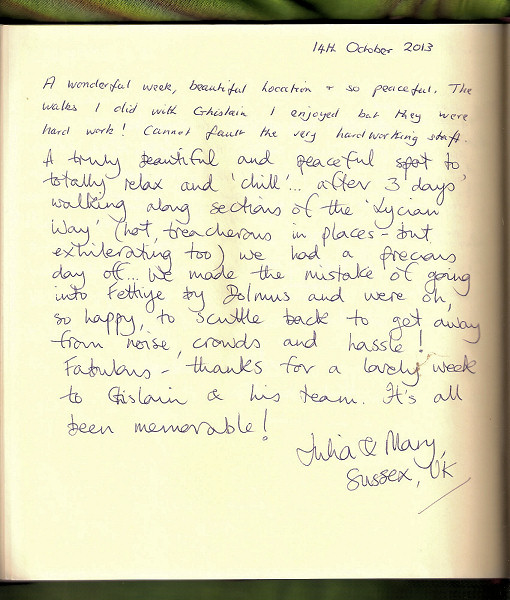 14th October 2013
A wonderful week, beautiful location + so peaceful. The
walks I did with Ghislain I enjoyed but they were
hard work! Cannot fault the very hardworking staff.
A truly beautiful and peaceful spot to
totally relax and 'chill'... after 3 days'
walking along sections of the 'Lycian
Way' (hot, treacherous in places - but
exhilerating too) we had a precious
day off... We made the mistake of going
into Fettiye by Dolmus and were oh,
so happy, to scuttle back to get away
from noise, crowds and hassle!
Fabulous - thanks for a lovely week
to Ghislain & his team. It's all
been memorable!
Julia & Mary,
Sussex, UK